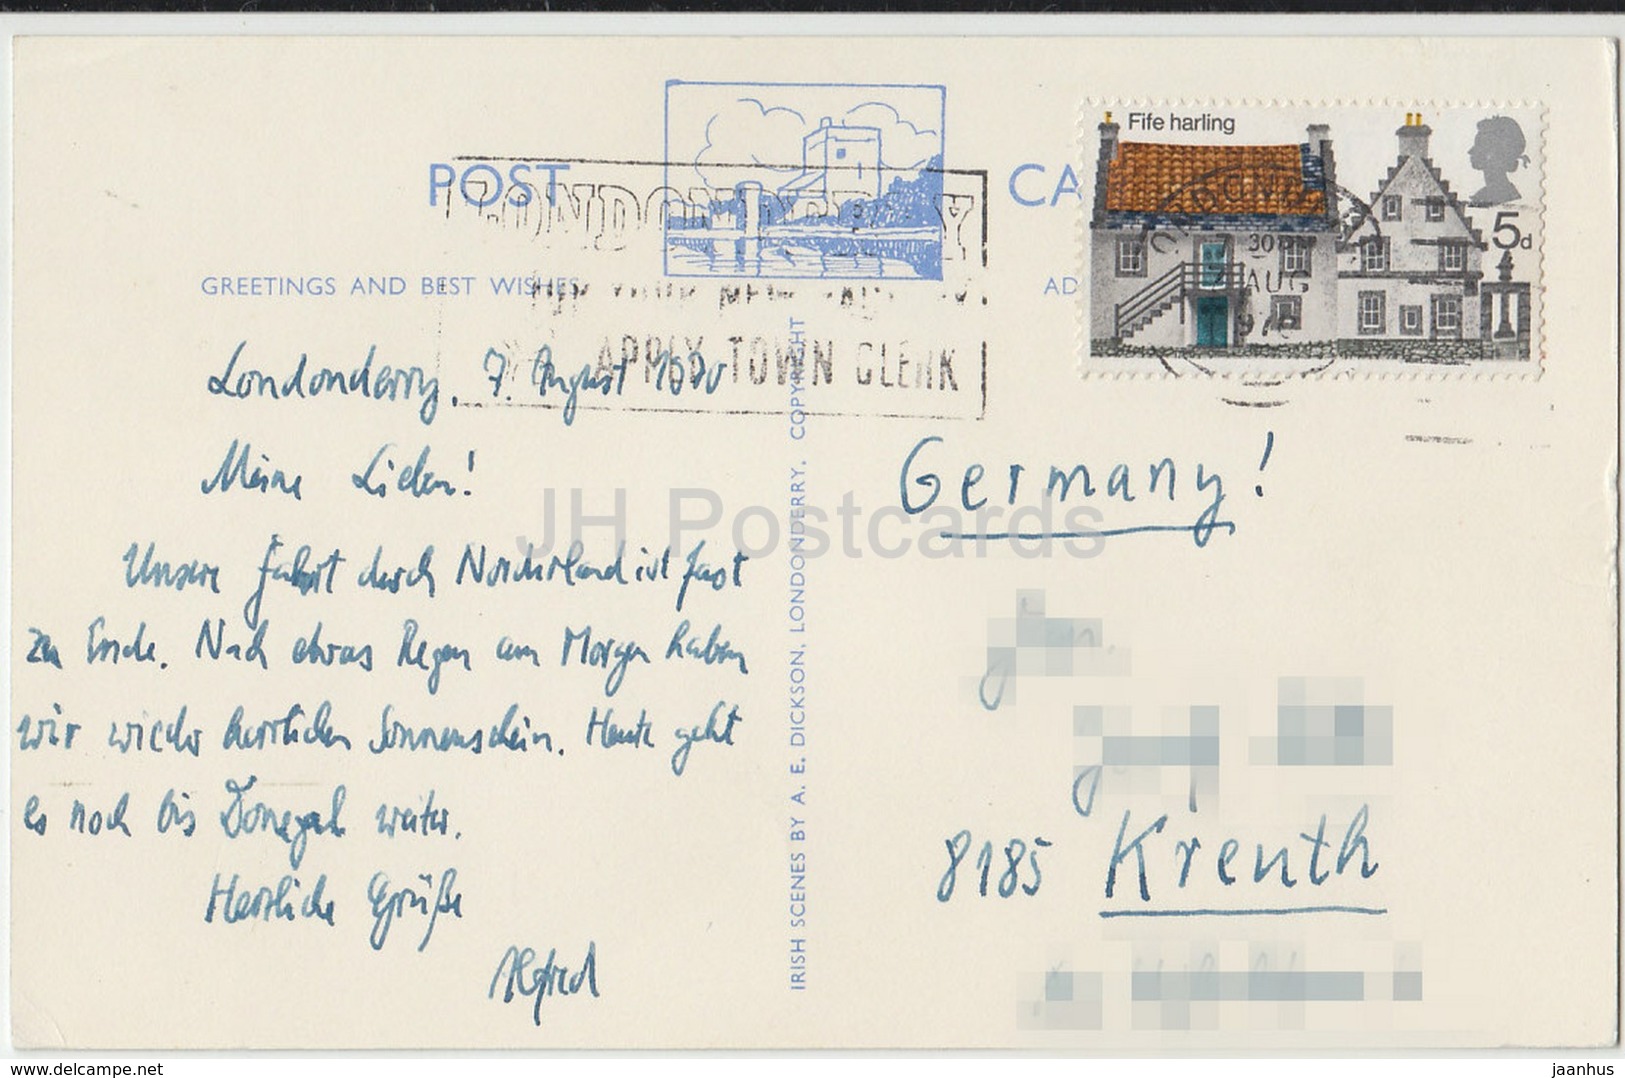 POST CA
GREETINGS AND BEST WISHES
AD
LONDONDERRY
APPLY TOWN CLERK
Fife harling
5d
30 PM
7 AUG
Londonderry, 7. August 1970
Meine Lieben!
Unsere Fahrt durch Nordirland ist fast
zu Ende. Nach etwas Regen am Morgen haben
wir wieder herrlichen Sonnenschein. Heute geht
es noch bis Donegal weiter.
Herzliche Grüße
Alfred
IRISH SCENES BY A. E. DICKSON, LONDONDERRY. COPYRIGHT
Germany!
8185 Kreuth
JH Postcards
www.delcampe.net
jaanhus